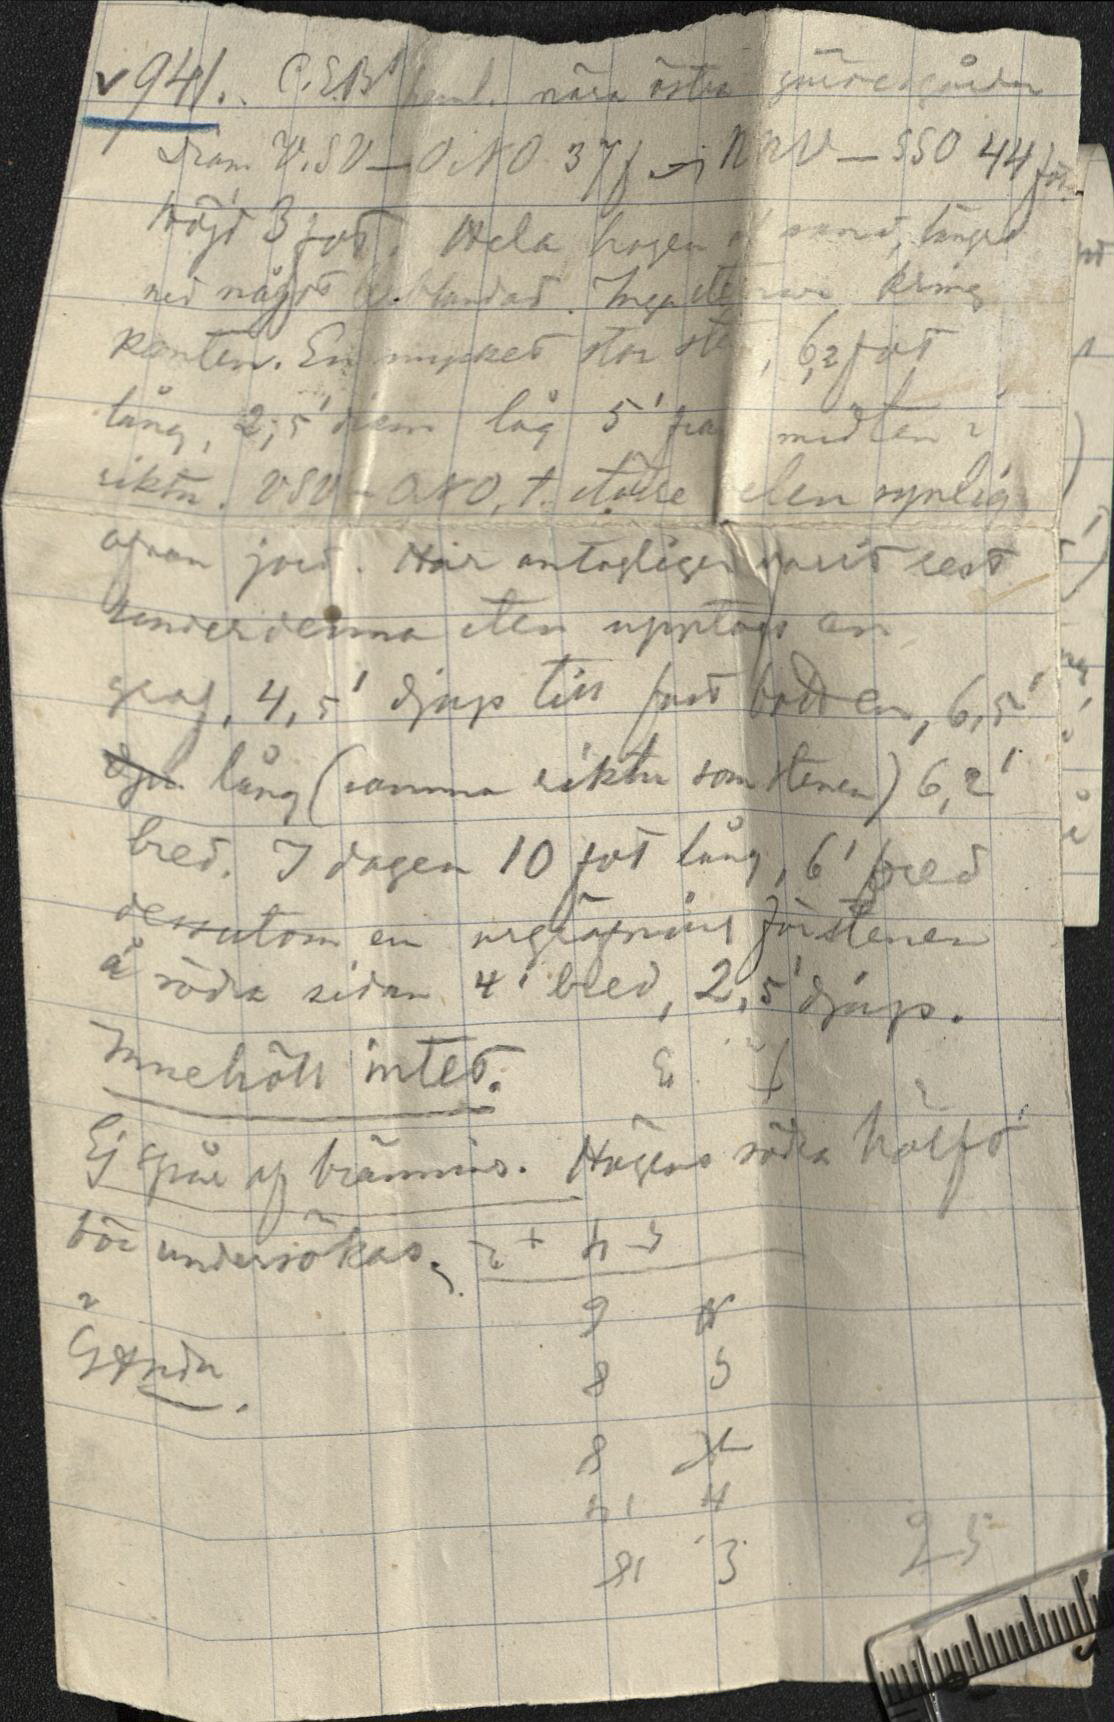 941. C.E.B. nära östra
diam VSV–ONO 37 f, NNV–SSO 44 fot
höjd 3 fot. Hela högen af sand, längst
ned något. Inga stenar kring
kanten. En mycket stor sten, 6,2 fot
lång, 2,5' diam låg 5' från midten i
riktn. VSV–ONO, t. större delen synlig
ofvan jord. Har antagligen varit rest
Under denna sten upptogs en
graf, 4,5' djup till fast botten, 6,5'
lång (samma riktn som stenen) 6,2'
bred. I dagen 10 fot lång, 6' bred
dessutom en urgräfning för stenen
å södra sidan 4' bred, 2,5' djup.
Innehöll intet.
Ej spår af bränning. Högens södra hälft
bör undersökas.
9
8 5
8
4
18 3
25